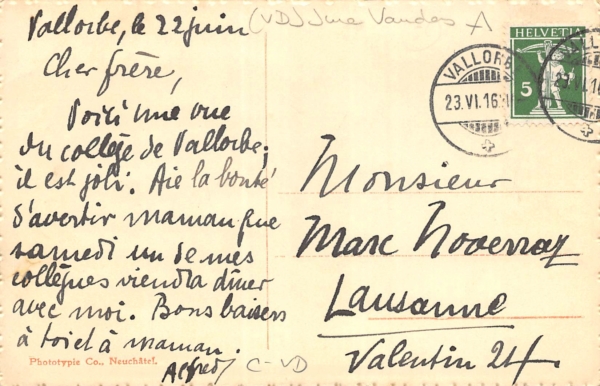 Vallorbe, le 22 juin
Cher frère,
Voici une vue
du collège de Vallorbe;
il est joli. Aie la bonté
d'avertir maman que
samedi un de mes
collègues viendra dîner
avec moi. Bons baisers
à toi et à maman.
Alfred
Phototypie Co., Neuchâtel.
(VD) Jura Vaudois A
HELVETIA
5
VALLORBE
23.VI.16
VALLO
23.VI.16
Monsieur
Marc Noverraz
Lausanne
Valentin 24.
C-VD